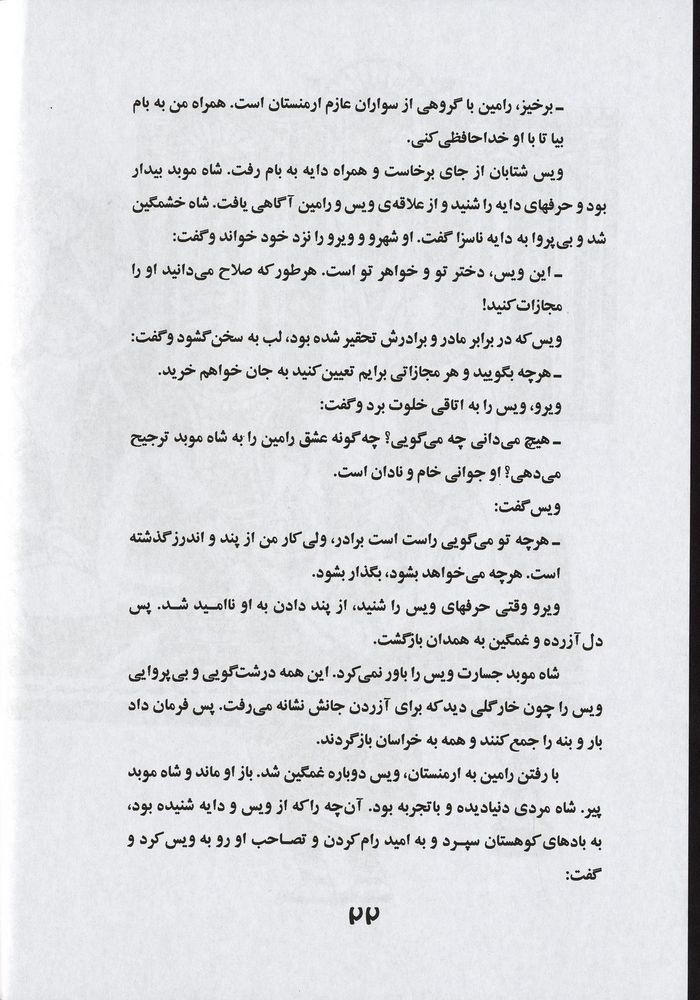 ـ برخیز، رامین با گروهی از سواران عازم ارمنستان است. همراه من به بام
بیا تا با او خداحافظی کنی.
ویس شتابان از جای برخاست و همراه دایه به بام رفت. شاه موبد بیدار
بود و حرفهای دایه را شنید و از علاقه‌ی ویس و رامین آگاهی یافت. شاه خشمگین
شد و بی‌پروا به دایه ناسزا گفت. او شهرو و ویرو را نزد خود خواند و گفت:
ـ این ویس، دختر تو و خواهر تو است. هرطور که صلاح می‌دانید او را
مجازات کنید!
ویس که در برابر مادر و برادرش تحقیر شده بود، لب به سخن گشود و گفت:
ـ هرچه بگویید و هر مجازاتی برایم تعیین کنید به جان خواهم خرید.
ویرو، ویس را به اتاقی خلوت برد و گفت:
ـ هیچ می‌دانی چه می‌گویی؟ چه‌گونه عشق رامین را به شاه موبد ترجیح
می‌دهی؟ او جوانی خام و نادان است.
ویس گفت:
ـ هرچه تو می‌گویی راست است برادر، ولی کار من از پند و اندرز گذشته
است. هرچه می‌خواهد بشود، بگذار بشود.
ویرو وقتی حرفهای ویس را شنید، از پند دادن به او ناامید شد. پس
دل‌آزرده و غمگین به همدان بازگشت.
شاه موبد جسارت ویس را باور نمی‌کرد. این همه درشت‌گویی و بی‌پروایی
ویس را چون خارگلی دید که برای آزردن جانش نشانه می‌رفت. پس فرمان داد
بار و بنه را جمع کنند و همه به خراسان بازگردند.
با رفتن رامین به ارمنستان، ویس دوباره غمگین شد. باز او ماند و شاه موبد
پیر. شاه مردی دنیادیده و باتجربه بود. آن‌چه را که از ویس و دایه شنیده بود،
به بادهای کوهستان سپرد و به امید رام کردن و تصاحب او رو به ویس کرد و
گفت:
۲۲